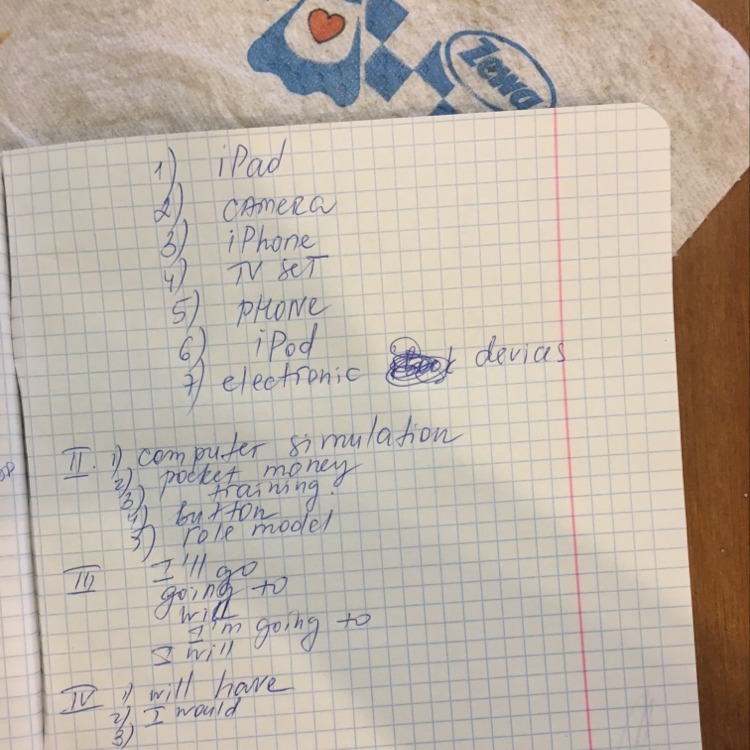 Zewa
1) iPad
2) camera
3) iPhone
4) TV set
5) phone
6) iPod
7) electronic devices
II. 1) computer simulation
2) pocket money
3) training.
4) button
5) role model
III I'll go
going to
will
I'm going to
I will
IV 1) will have
2) I would
3)